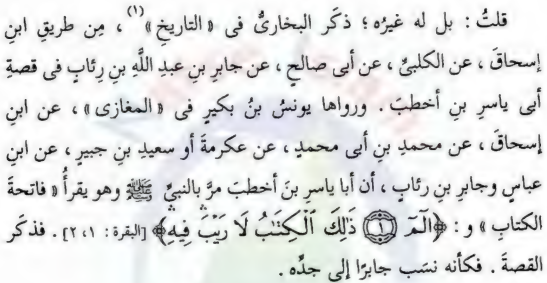 قلتُ : بل له غيرُه ؛ ذكَر البخارىُّ فى « التاريخِ »(١) ، مِن طريقِ ابنِ
إسحاقَ ، عن الكلبىِّ ، عن أبى صالحٍ ، عن جابرِ بنِ عبدِ اللَّهِ بنِ رئابٍ فى قصةِ
أبى ياسرِ بنِ أخطبَ . ورواها يونسُ بنُ بكيرٍ فى « المغازى » ، عن ابنِ
إسحاقَ ، عن محمدِ بنِ أبى محمدٍ ، عن عكرمةَ أو سعيدِ بنِ جبيرٍ ، عن ابنِ
عباسٍ وجابرِ بنِ رئابٍ ، أن أبا ياسرِ بنَ أخطبَ مرَّ بالنبىِّ ﷺ وهو يقرأُ « فاتحةَ
الكتابِ » و : ﴿الٓمٓ ١ ذَٰلِكَ ٱلْكِتَٰبُ لَا رَيْبَ فِيهِ﴾ [البقرة : ١، ٢] . فذكَر
القصةَ . فكأنه نسَب جابرًا إلى جدِّه .